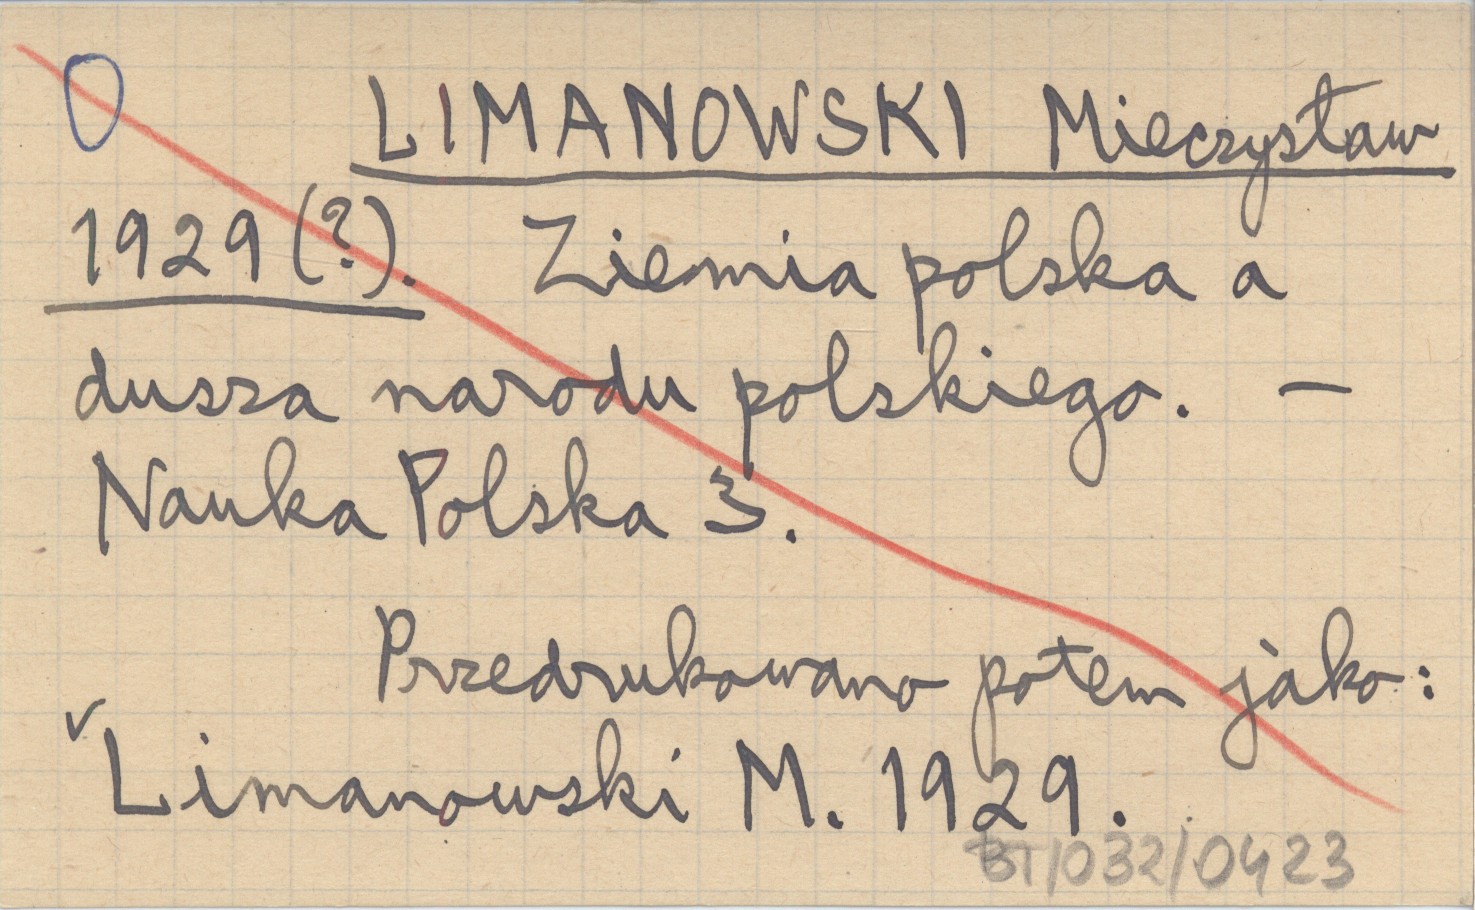 LIMANOWSKI Mieczysław
1929(?). Ziemia polska a
dusza narodu polskiego. –
Nauka Polska 3.
Przedrukowano potem jako:
✓ Limanowski M. 1929.
BT/032/0423